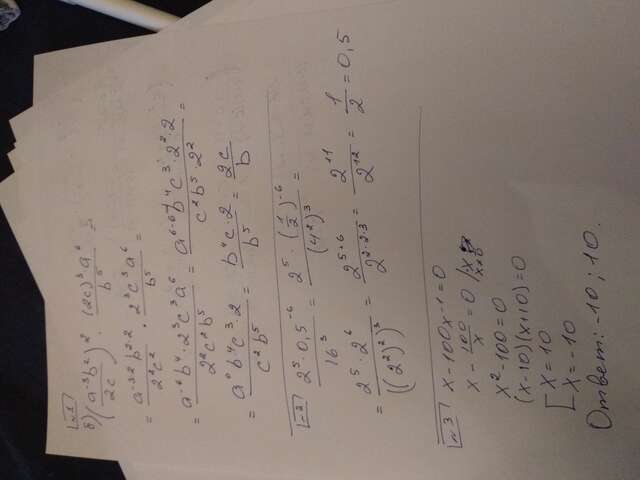 №1
б) (a⁻³b²/2c)² · (2c)³a⁶/b⁵ =
= a⁻³·²b²·²/2²c² · 2³c³a⁶/b⁵ =
= a⁻⁶b⁴·2³c³a⁶/2²c²b⁵ = a⁶⁻⁶b⁴c³·2²·2/c²b⁵·2² =
= a⁰b⁴c³·2/c²b⁵ = b⁴c·2/b⁵ = 2c/b
№2 2⁵·0,5⁻⁶/16³ = 2⁵·(1/2)⁻⁶/(4²)³ =
= 2⁵·2⁶/((2²)²)³ = 2⁵⁺⁶/2²·²·³ = 2¹¹/2¹² = 1/2 = 0,5
№3 x-100x⁻¹=0
x - 100/x = 0 |·x x≠0
x²-100=0
(x-10)(x+10)=0
[x=10
x=-10
Ответ: -10; 10.